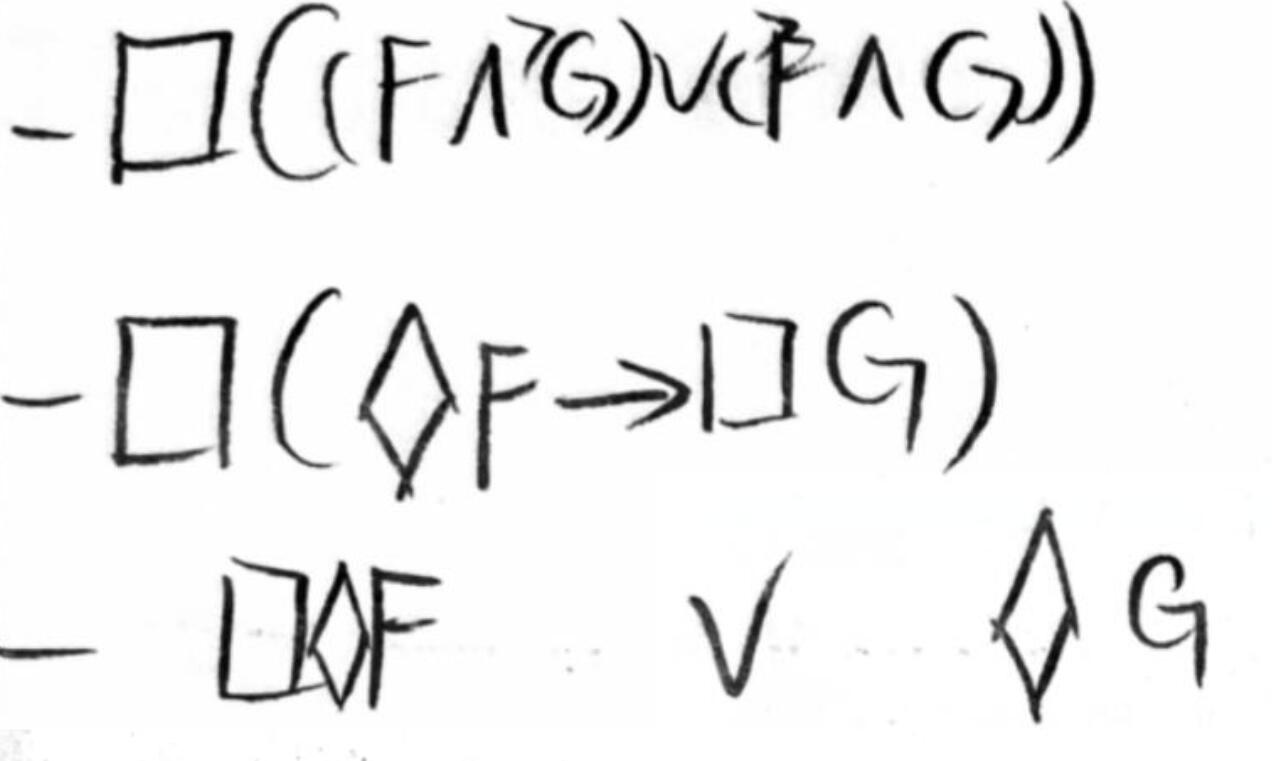 - □((F∧¬G)∨(¬F∧G))
- □(◇F→□G)
- □◇F ∨ ◇G